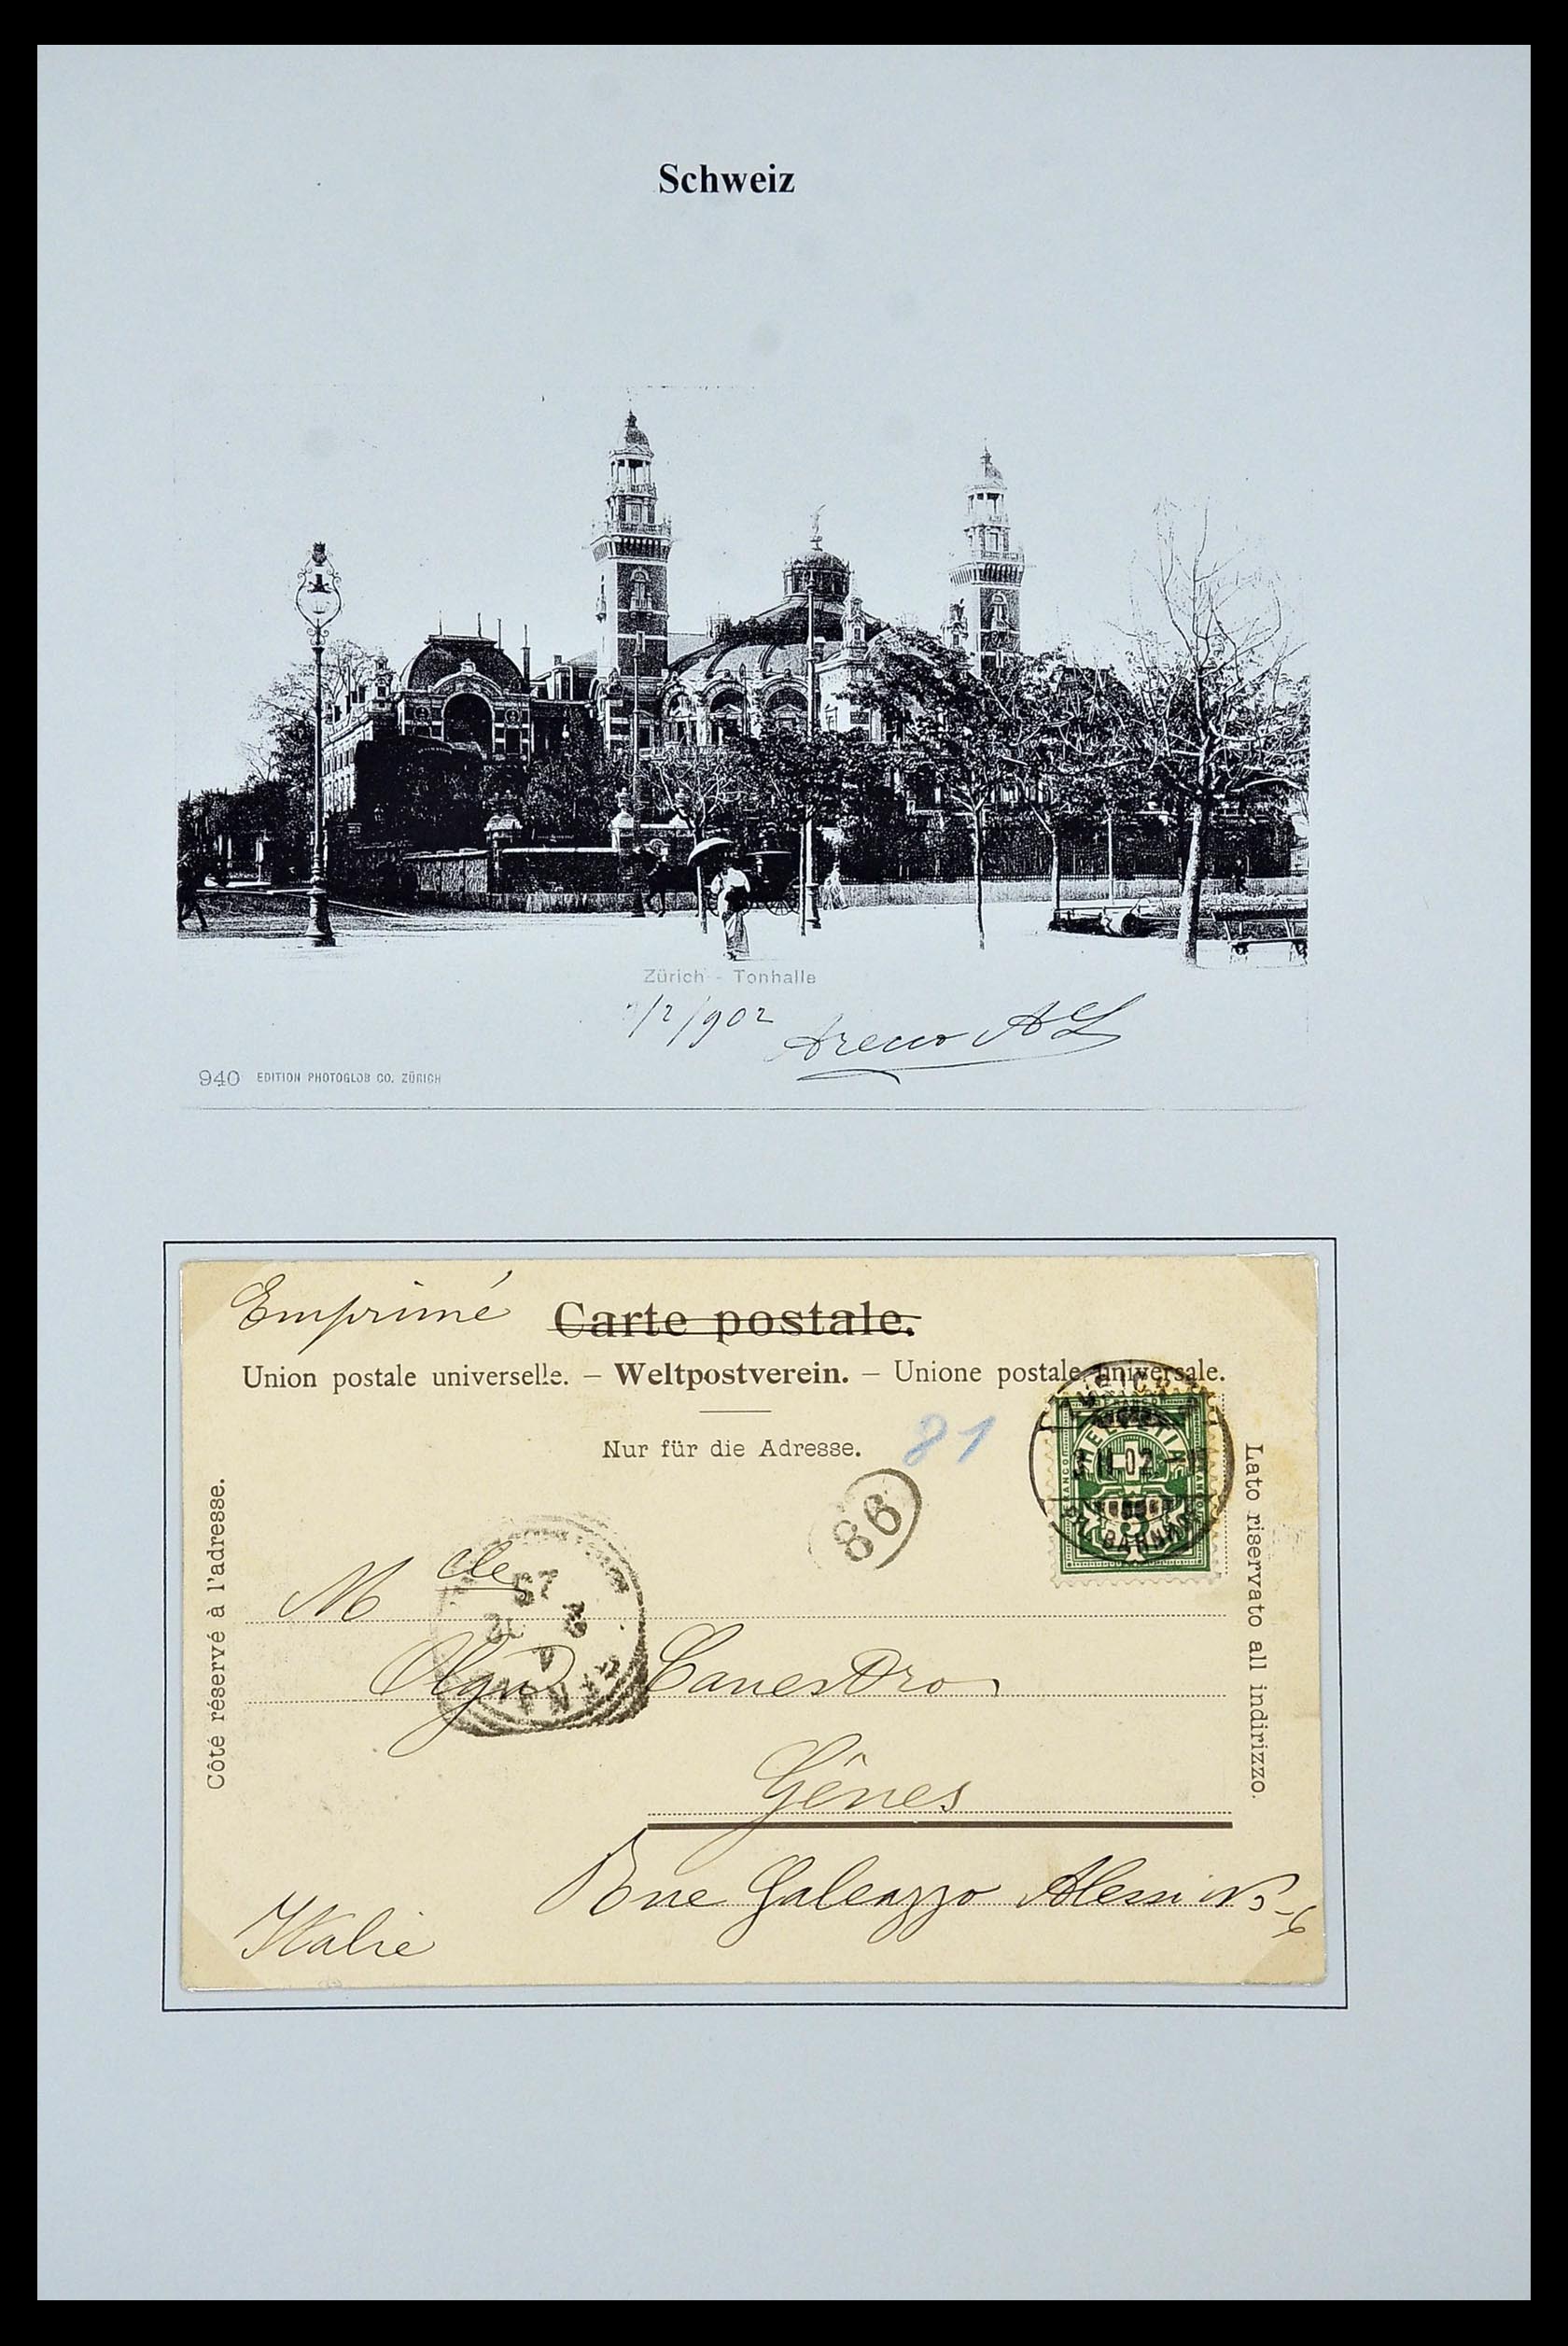 Schweiz
Zürich - Tonhalle
/2/902 Areco A L
940 EDITION PHOTOGLOB CO. ZÜRICH
Emprimé Carte postale.
Union postale universelle. – Weltpostverein. – Unione postale universale.
Nur für die Adresse. 81
FRANCO
HELVETIA
BAHNH
86
Côté réservé à l'adresse.
Lato riservato all indirizzo.
M elle
Olga Canestro
Gênes
Rue Galeazzo Alessi No-6
Italie